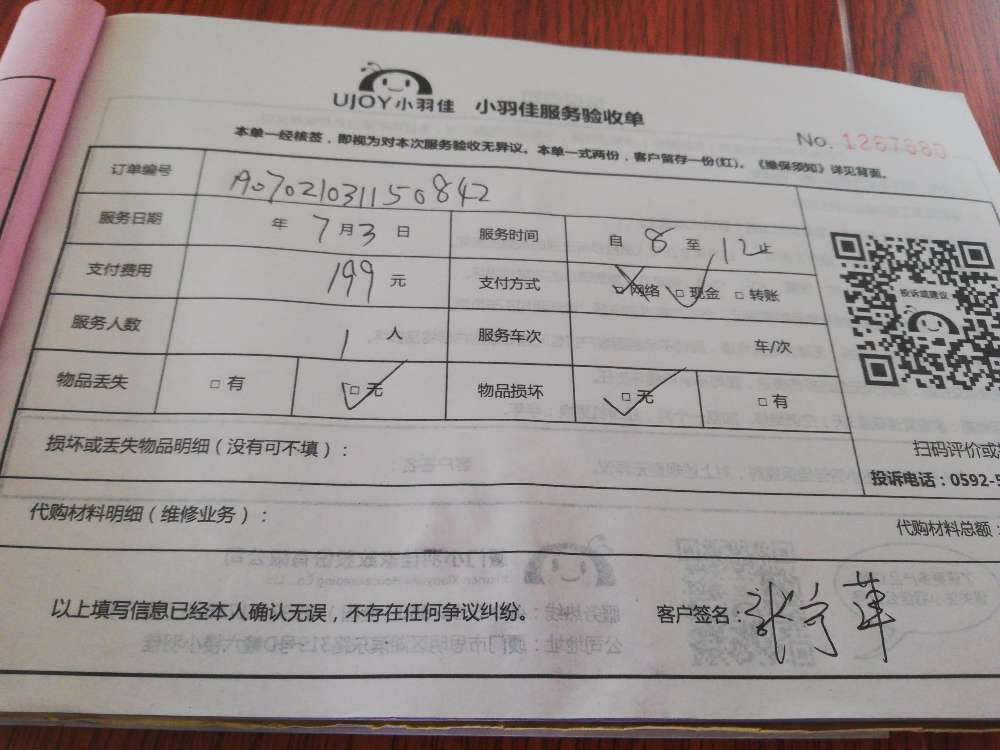 UJOY小羽佳 小羽佳服务验收单
No. 1267680
本单一经核签，即视为对本次服务验收无异议。本单一式两份，客户留存一份(红)。《维保须知》详见背面。
订单编号 A07021031150842
服务日期 年 7月3日 服务时间 自 8 至 12止
支付费用 199 元 支付方式 □网络 □现金 □转账
投诉或建议
服务人数 1 人 服务车次 车/次
物品丢失 □有 □无 物品损坏 □无 □有
损坏或丢失物品明细（没有可不填）：
扫码评价或
投诉电话：0592-5
代购材料明细（维修业务）： 代购材料总额：
以上填写信息已经本人确认无误，不存在任何争议纠纷。 客户签名：